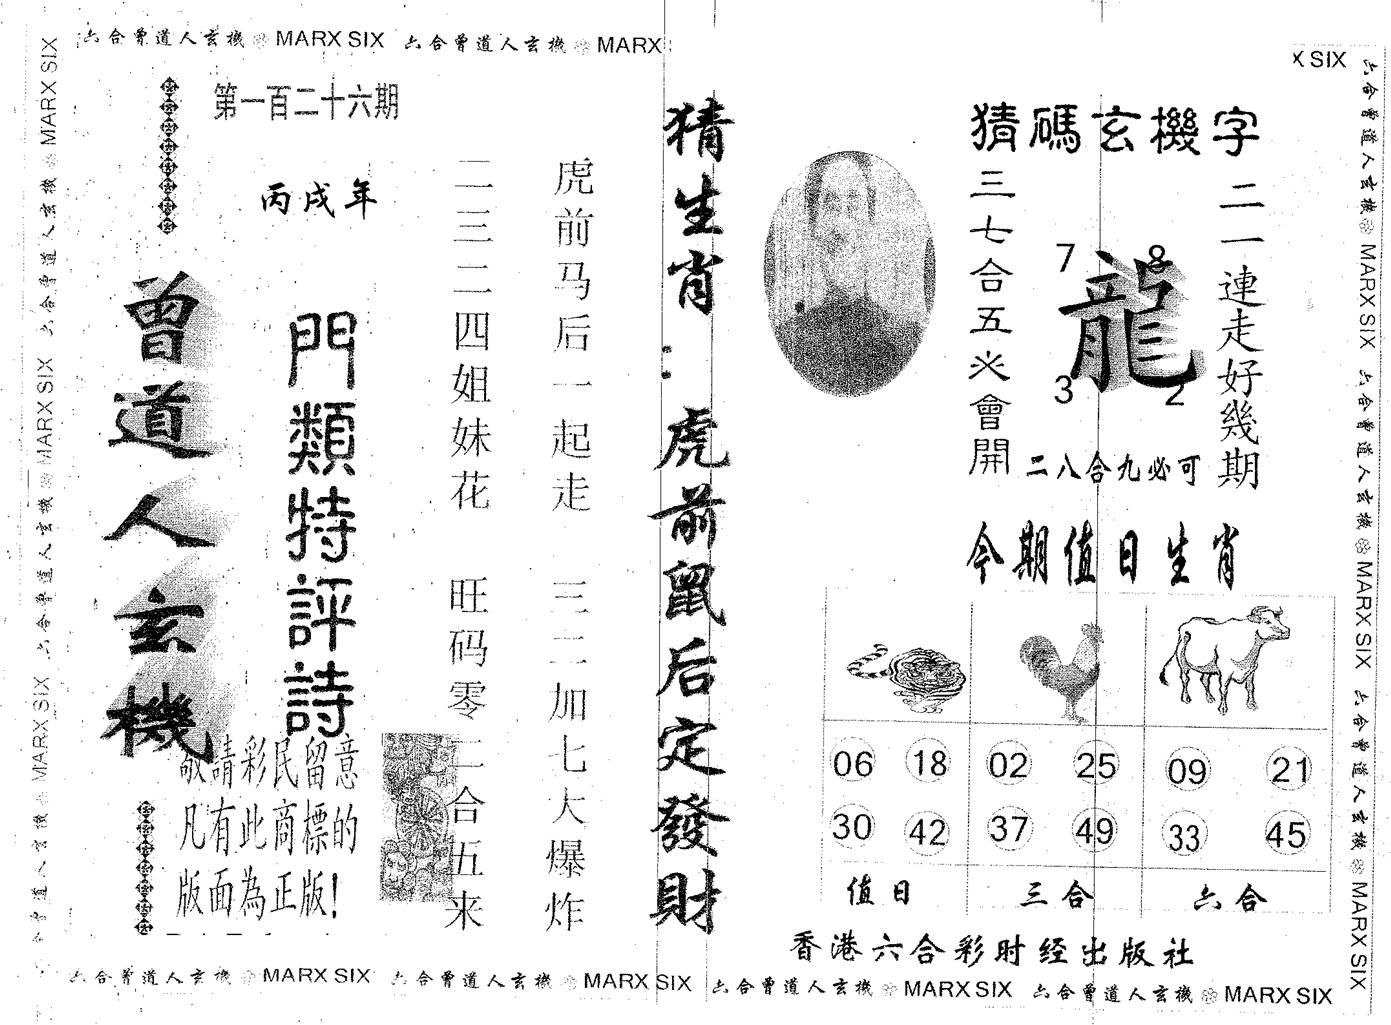 六合曾道人玄機 MARX SIX 六合曾道人玄機 MARX
X SIX
第一百二十六期
丙戌年
曾道人玄機
門類特評詩
敬請彩民留意
凡有此商標的
版面為正版!
虎前马后一起走 三二加七大爆炸
二三二四姐妹花 旺码零二合五来
猜生肖:虎前鼠后定發財
猜碼玄機字
二一連走好幾期
三七合五必會開
7 8
龍
3 2
二八合九必可
今期值日生肖
06 18 02 25 09 21
30 42 37 49 33 45
值日 三合 六合
香港六合彩时经出版社
六合曾道人玄機 MARX SIX 六合曾道人玄機 MARX SIX 六合曾道人玄機 MARX SIX 六合曾道人玄機 MARX SIX
六合曾道人玄機 MARX SIX 六合曾道人玄機 MARX SIX 六合曾道人玄機 MARX SIX
六合曾道人玄機 MARX SIX 六合曾道人玄機 MARX SIX 六合曾道人玄機 MARX SIX